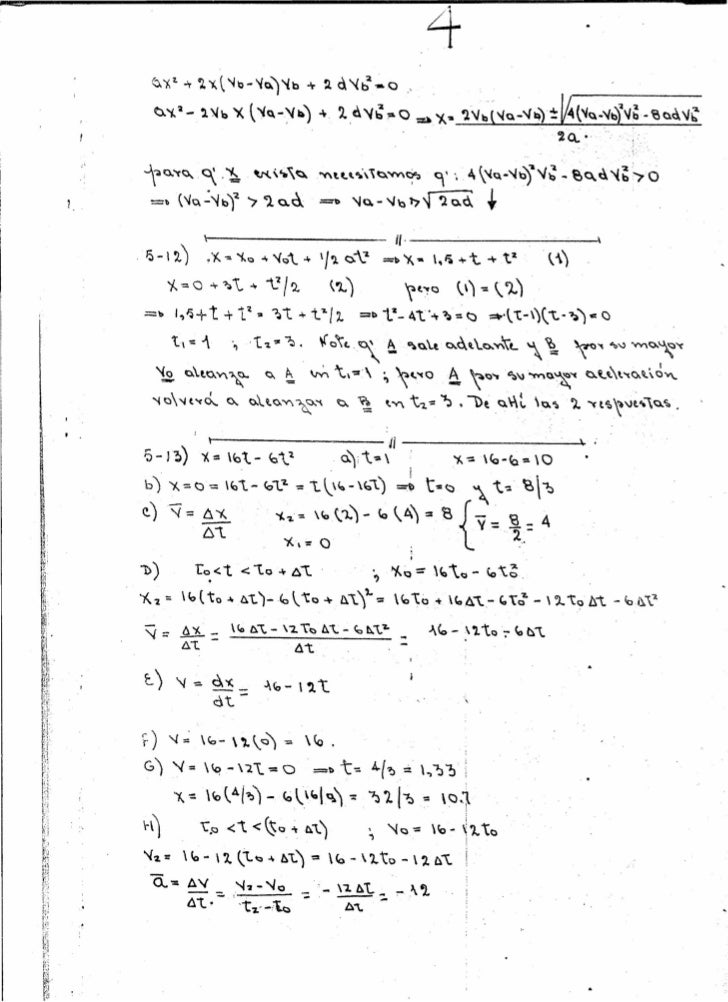 4
ax² + 2x(Vb-Va)Vb + 2dVb² = 0
ax² - 2Vb x (Va-Vb) + 2dVb² = 0 ⇒ x = 2Vb(Va-Vb) ± √4(Va-Vb)²Vb² - 8adVb² / 2a.
para q' x exista necesitamos q': 4(Va-Vb)²Vb² - 8adVb² > 0
⇒ (Va-Vb)² > 2ad ⇒ Va-Vb > √2ad ↓
//
5-12) x = x0 + V0t + 1/2 at² ⇒ x = 1,5 + t + t² (1)
x = 0 + 3t + t²/2 (2) pero (1) = (2)
⇒ 1,5 + t + t² = 3t + t²/2 ⇒ t² - 4t + 3 = 0 ⇒ (t-1)(t-3) = 0
t1 = 1 ; t2 = 3. Note q' A sale adelante y B por su mayor
V0 alcanza a A en t1 = 1 ; pero A por su mayor aceleración
volverá a alcanzar a B en t2 = 3. De ahí las 2 respuestas.
//
5-13) x = 16t - 6t² a) t = 1 x = 16 - 6 = 10
b) x = 0 = 16t - 6t² = t(16 - 16t) ⇒ t = 0 y t = 8/3
c) V̅ = Δx/Δt x2 = 16(2) - 6(4) = 8 { V̅ = 8/2 = 4
x1 = 0
D) t0 < t < t0 + Δt ; x0 = 16t0 - 6t0²
x2 = 16(t0 + Δt) - 6(t0 + Δt)² = 16t0 + 16Δt - 6t0² - 12t0Δt - 6Δt²
V̅ = Δx/Δt = 16Δt - 12t0Δt - 6Δt² / Δt = 16 - 12t0 - 6Δt
E) V = dx/dt = 16 - 12t
F) V = 16 - 12(0) = 16.
G) V = 16 - 12t = 0 ⇒ t = 4/3 = 1,33
x = 16(4/3) - 6(16/9) = 32/3 = 10.7
H) t0 < t < (t0 + Δt) ; V0 = 16 - 12t0
V2 = 16 - 12(t0 + Δt) = 16 - 12t0 - 12Δt
a̅ = ΔV/Δt. = V2-V0/t2-t0 = - 12Δt/Δt = -12